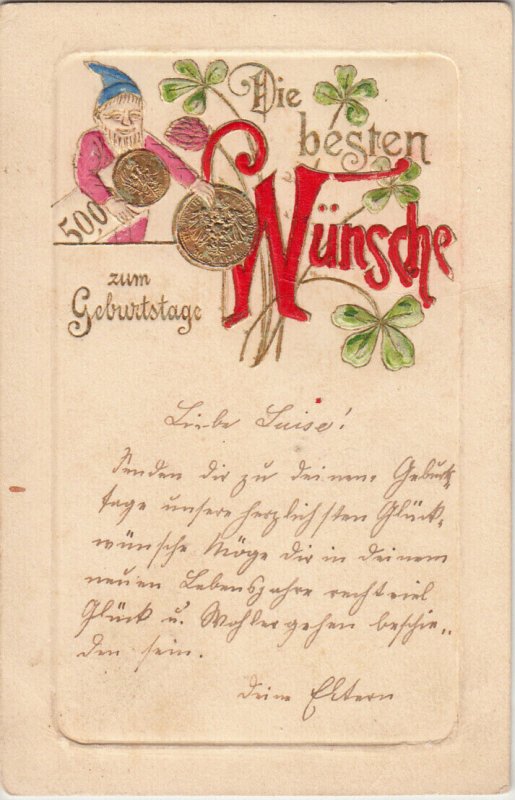 500
Die
besten
Wünsche
zum
Geburtstage
Liebe Luise!
Senden dir zu deinem Geburts-
tage unsere herzlichsten Glück-
wünsche Möge dir in deinem
neuen Lebensjahre recht viel
Glück u. Wohlergehen beschie-
den sein.
Deine Eltern